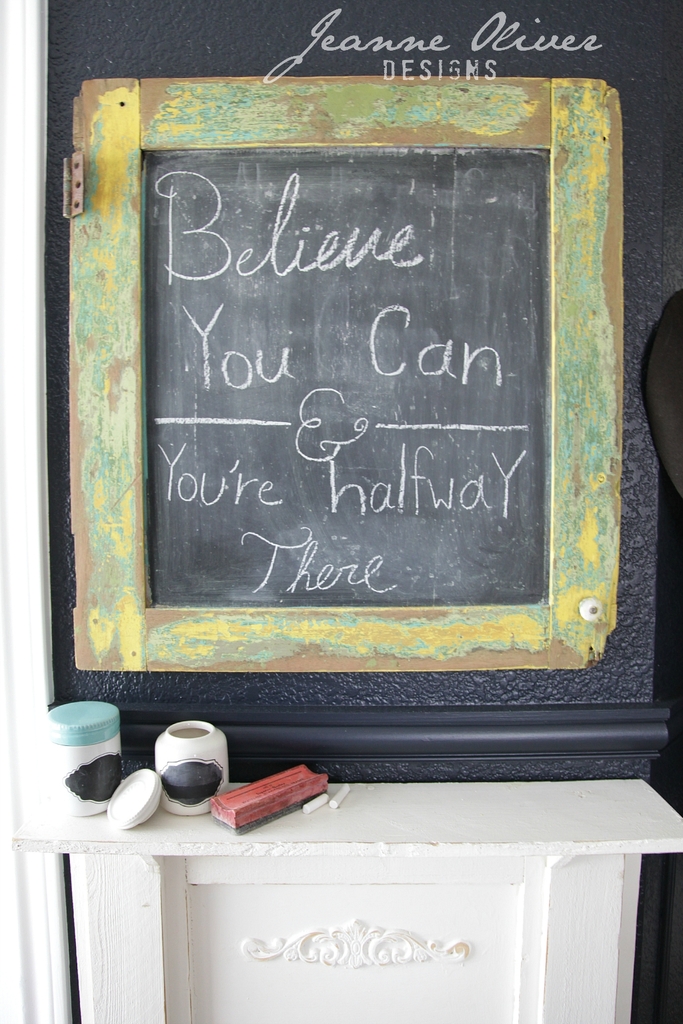 Jeanne Oliver
DESIGNS
Believe
You Can
&
You're halfwaY
There